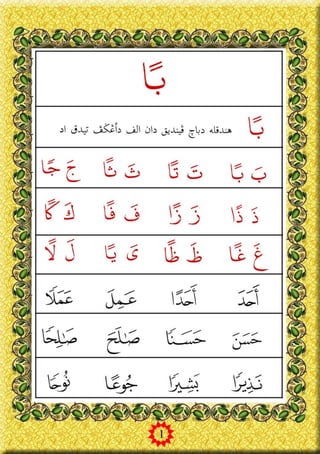 بًا
بًا هندقله دباچ ڤينديق دان الف دأڠكڤ تيدق اد
بَ بًا تَ تًا ثَ ثًا جَ جًا
ذَ ذًا زَ زًا فَ فًا كَ كًا
غَ غًا ظَ ظًا ىَ يًا لَ لًا
أَحَدَ أَحَدًا عَمِلَ عَمَلًا
حَسَنَ حَسَنًا صَلَحَ صَلِحًا
نَذِيرًا بَشِيرًا جُوعًا نُوحًا
١